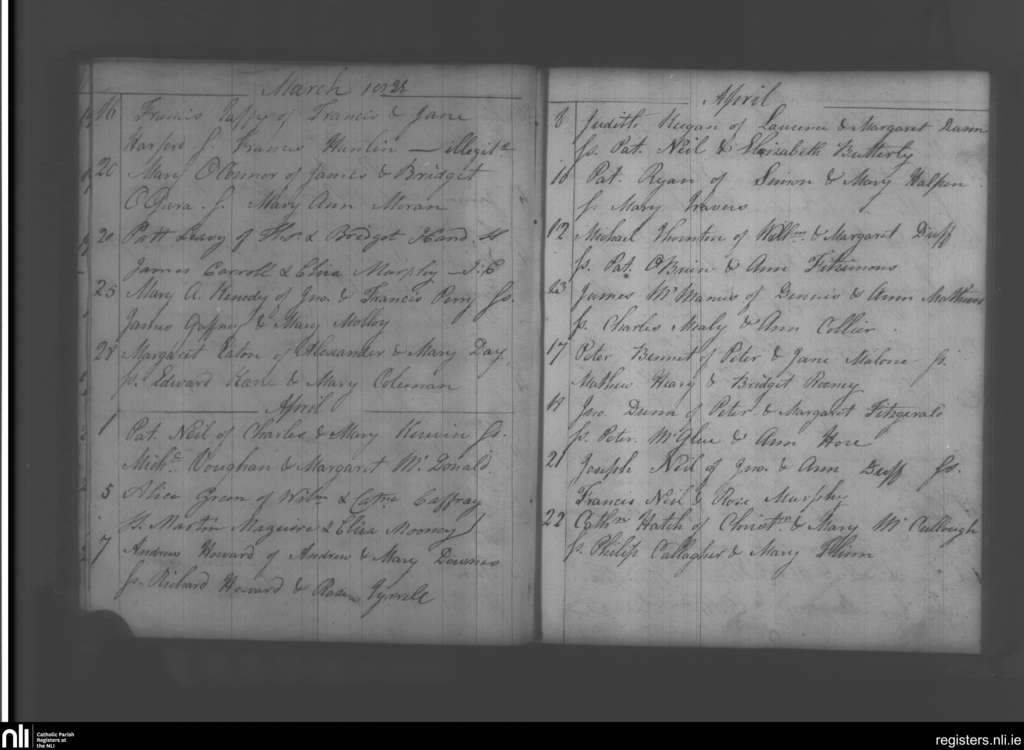 March 1828
16 Francis Caffry of Francis & Jane
Harford s. Francis Hanlin — illegit.
20 Mary O'Connor of James & Bridget
O'Gara s. Mary Ann Moran
20 Patt Leavy of Thos. & Bridget Hand. ss
James Carroll & Eliza Murphy
25 Mary A. Kenedy of Jno. & Francis Perry Ss.
James Gaffney & Mary Molloy
28 Margaret Eaton of Alexander & Mary Day
ss. Edward Kane & Mary Coleman
April
1 Pat. Neil of Charles & Mary Kerwin Ss.
Michl. Voughan & Margaret Mc Donald.
5 Alice Green of Wilm & Cathne Caffray
Ss. Martin Maguire & Eliza Mooney
7 Andrew Howard of Andrew & Mary Downes
ss. Richard Howard & Rose Tyrrele
April
8 Judith Keegan of Laurence & Margaret Dunn
ss. Pat. Neil & Elizabeth Butterly
10 Pat. Ryan of Simon & Mary Halpen
s. Mary Travers
12 Michael Thunton of Willm & Margaret Duff
ss. Pat. O'Brien & Ann Fitzsimons
23 James McManus of Dennis & Ann Mathews
ss. Charles Mealy & Ann Collier
17 Peter Bennet of Peter & Jane Malone ss.
Mathew Heary & Bridget Rooney
19 Jno. Dunn of Peter & Margaret Fitzgerald
ss. Peter McGlue & Ann Hore
21 Joseph Neil of Jno. & Ann Duff Ss.
Francis Neil & Rose Murphy
22 Cathn Hatch of Christr & Mary McCullough
ss. Philip Callagher & Mary Flinn
nli
Catholic Parish
Registers at
the NLI
registers.nli.ie